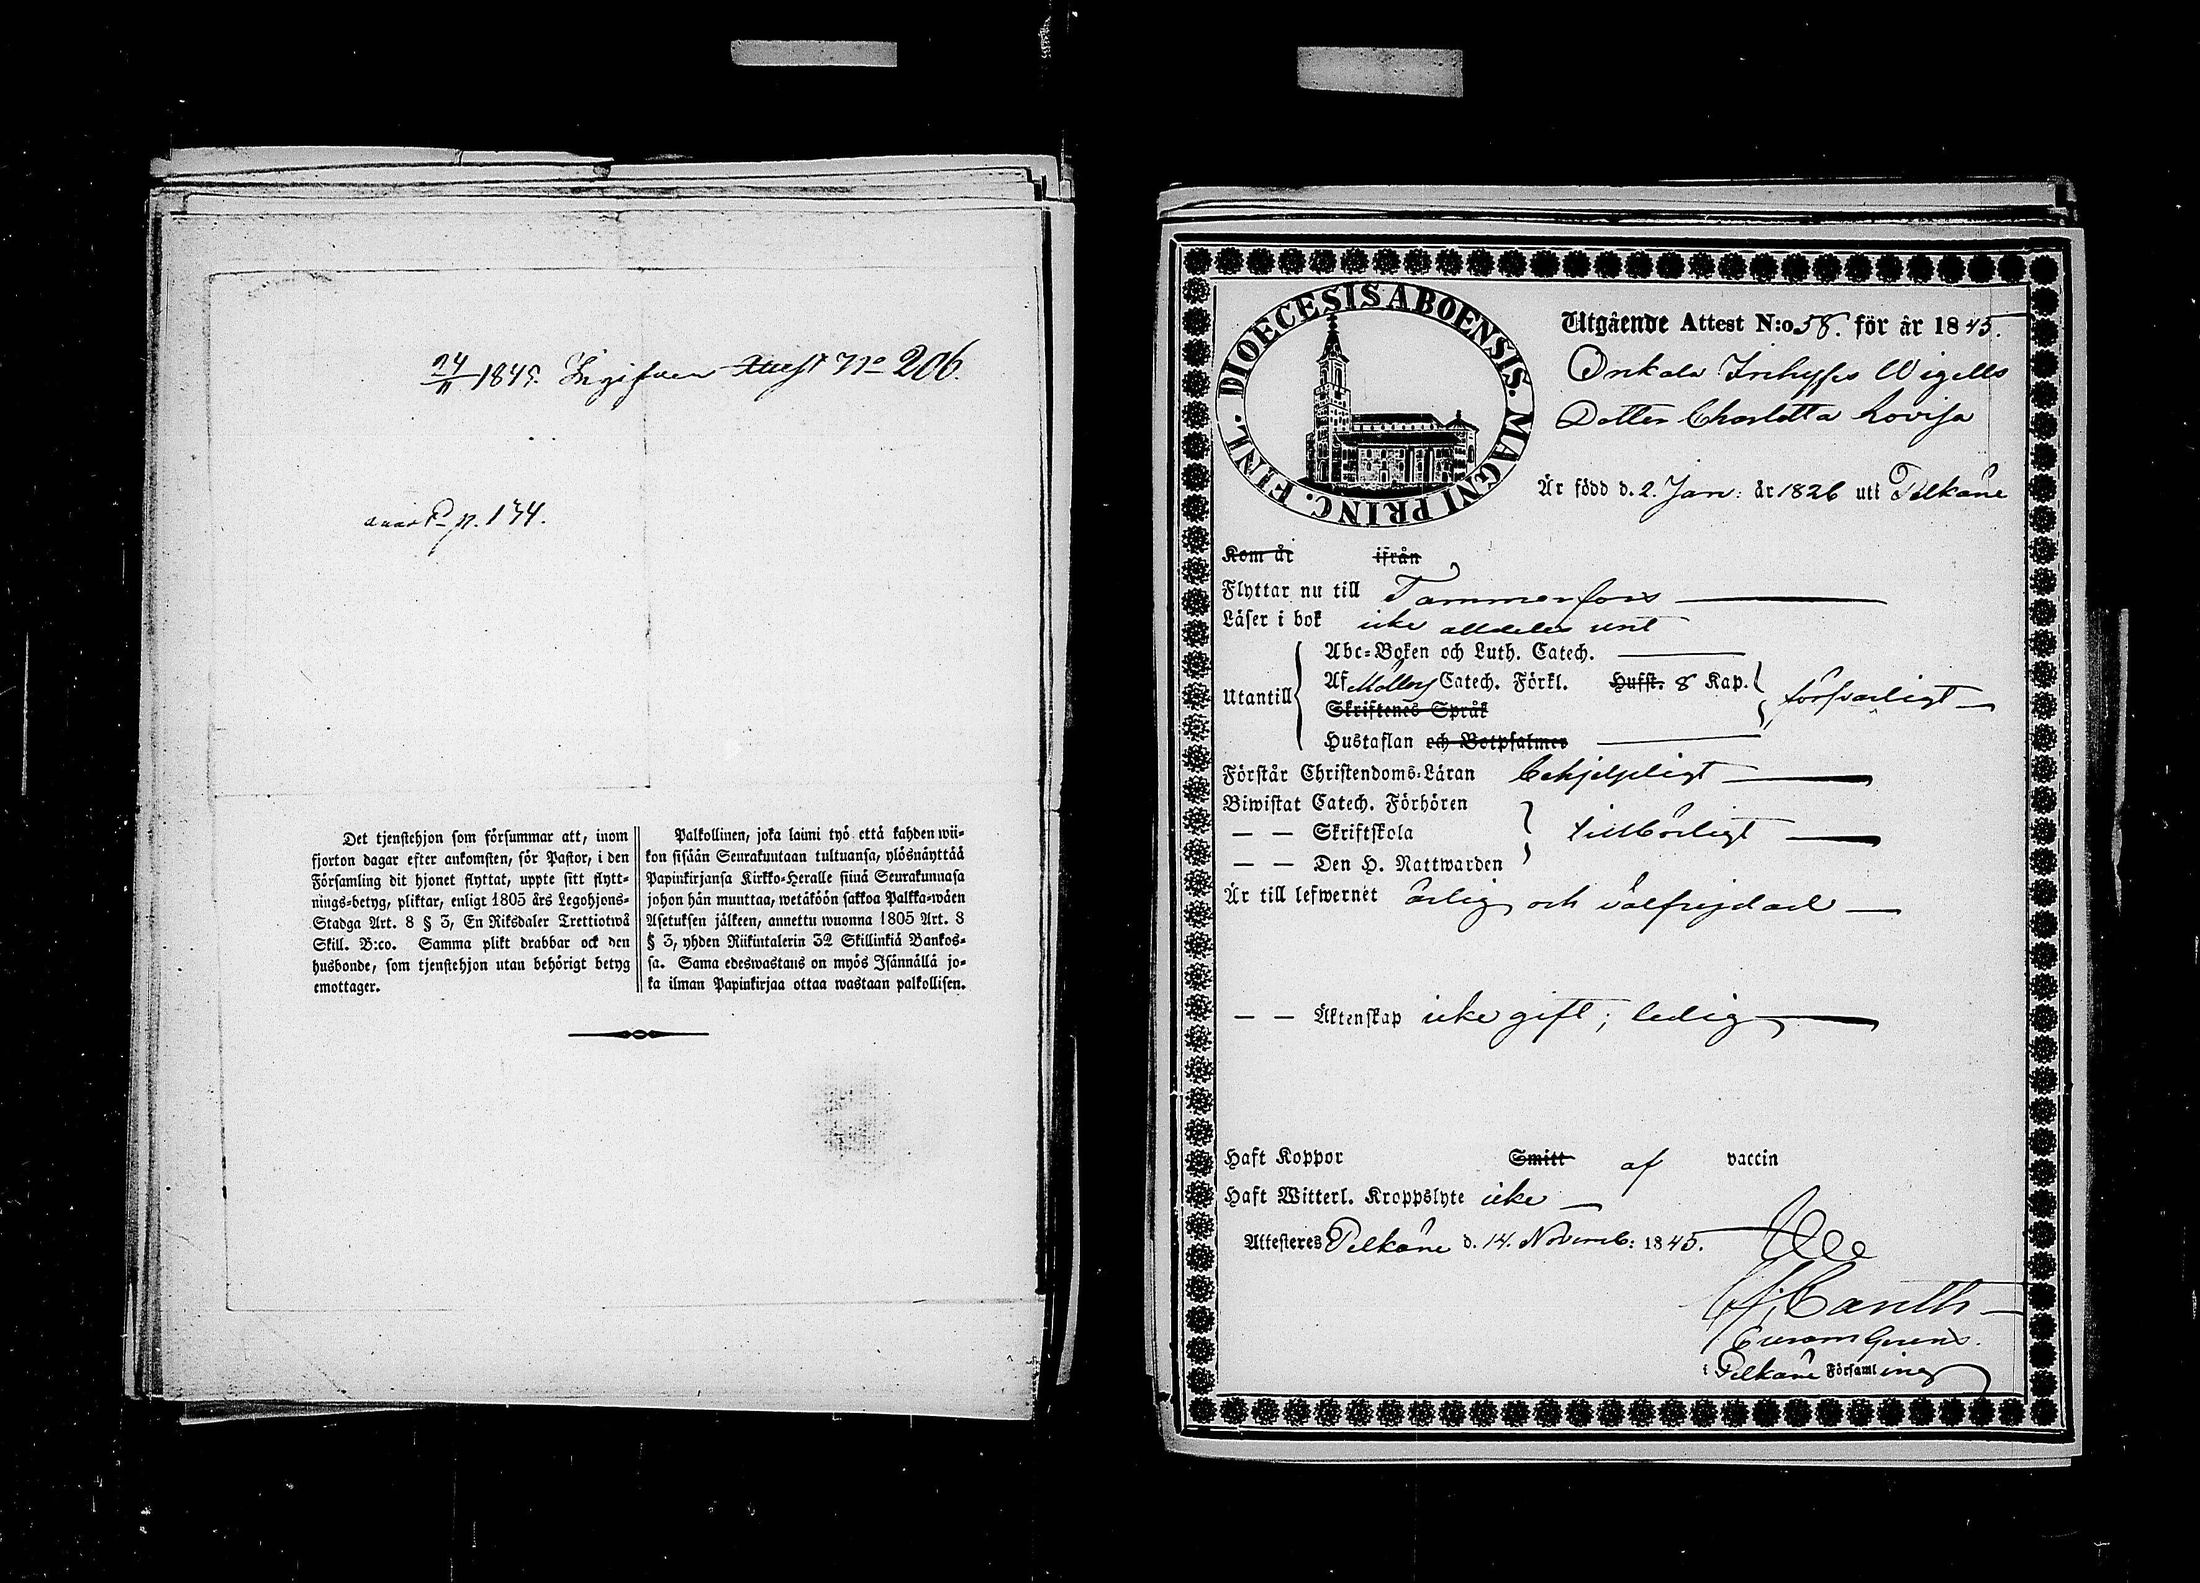 24/11 1845. Ingifven Attest No 206.
p. 174.
Det tjenstehjon som försummar att, inom
fjorton dagar efter ankomsten, för Pastor, i den
Församling dit hjonet flyttat, uppte sitt flytt-
nings-betyg, pliktar, enligt 1805 års Legohjons-
Stadga Art. 8 § 3, En Riksdaler Trettiotwå
Skill. B:co. Samma plikt drabbar ock den
husbonde, som tjenstehjon utan behörigt betyg
emottager.
Palkollinen, joka laimi työ että kahden wii-
kon sisään Seurakuntaan tultuansa, ylösnäyttää
Papinkirjansa Kirkko-Heralle siinä Seurakunnasa
johon hän muuttaa, wetäköön sakkoa Palkka-wäen
Asetuksen jälkeen, annettu wuonna 1805 Art. 8
§ 3, yhden Riikintalerin 32 Skillinkiä Bankos-
sa. Sama edeswastaus on myös Isännällä jo-
ka ilman Papinkirjaa ottaa wastaan palkollisen.
DIOECESIS ABOENSIS. MAGNI PRINC. FINL.
Utgående Attest N:o 58. för år 1845.
Onkala Inhyses Wigells
Dotter Charlotta Lovisa
Är född d. 2. Jan: år 1826 uti Pelkäne
Kom år ifrån
Flyttar nu till Tammerfors
Läser i bok icke alldeles rent
Abc-Boken och Luth. Catech.
Utantill Af Mollers Catech. Förkl. Hufst. 8 Kap. försvarligt
Skriftenes Språk
Hustaflan och Botpsalmer
Förstår Christendoms-Läran behjelpligt
Biwistat Catech. Förhören
— — Skriftskola tillbörligt
— — Den H. Nattwarden
Är till lefwernet ärlig och välfrejdad
— — Äktenskap icke gift; ledig
Haft Koppor Smitt af vaccin
Haft Witterl. Kroppslyte icke
Attesteras Pelkäne d. 14. Novemb: 1845.
Canth
i Pelkäne Församling